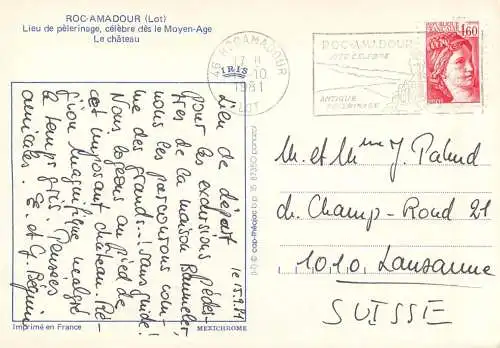 ROC-AMADOUR (Lot)
Lieu de pèlerinage, célèbre dès le Moyen-Age
Le château
IRIS
46 ROCAMADOUR
17 H
10
1981
LOT
ROC-AMADOUR
SITE CELEBRE
ANTIQUE
PELERINAGE
REPUBLIQUE FRANÇAISE
1,60
le 15.9.81
Lieu de départ
pour les excursions pédes-
tres de la maison
nous les parcourons com-
me des grands...! sans guide!
Nous logeons au pied de
cet imposant château. Ré-
gion magnifique malgré
le temps gris. Pensées
amicales. E. et G. Béguin
M. et Mme J. Pahud
ch. Champ-Rond 21
1010 Lausanne
SUISSE
(H) © cap-théojac b.p. 15 87350 panazol
Imprimé en France
MEXICHROME